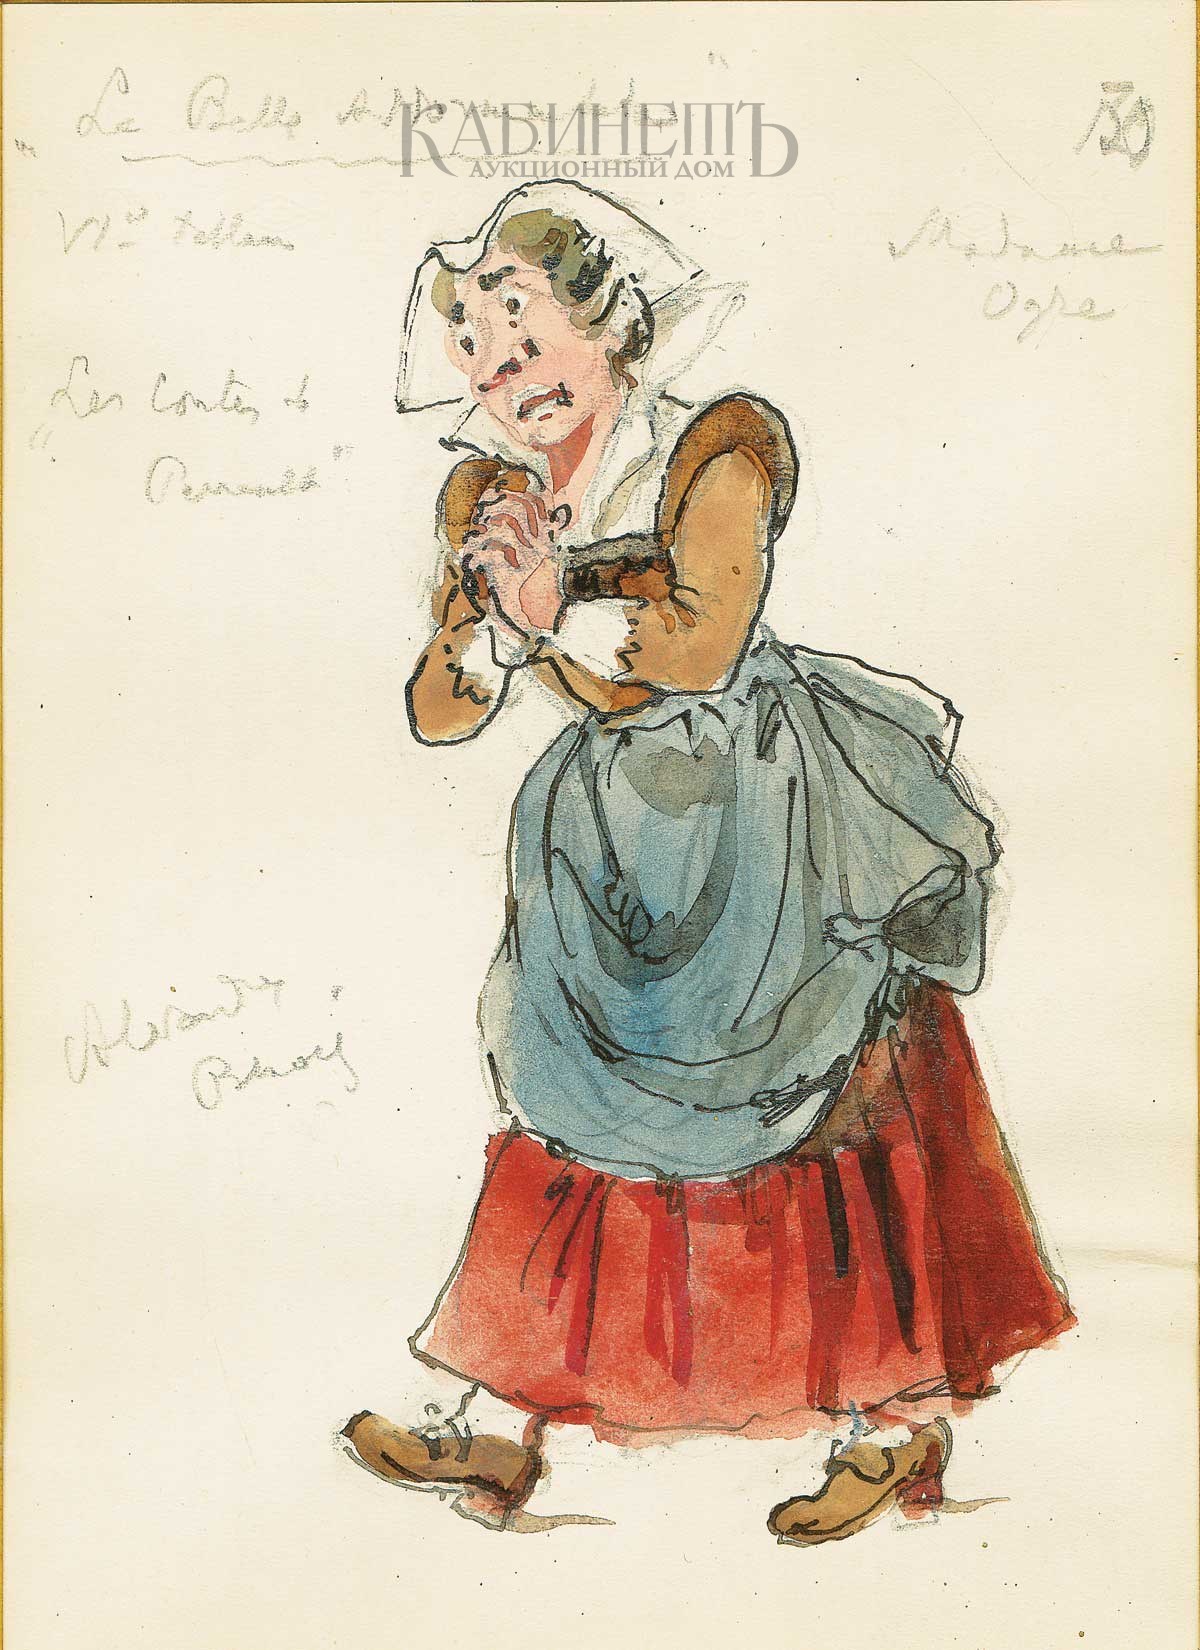 "La Belle
КАБИНЕТЪ
АУКЦИОННЫЙ ДОМ
50
VIme tableau
Madame
Ogre
"Les Contes de
Perrault"
Alexandre
Benois